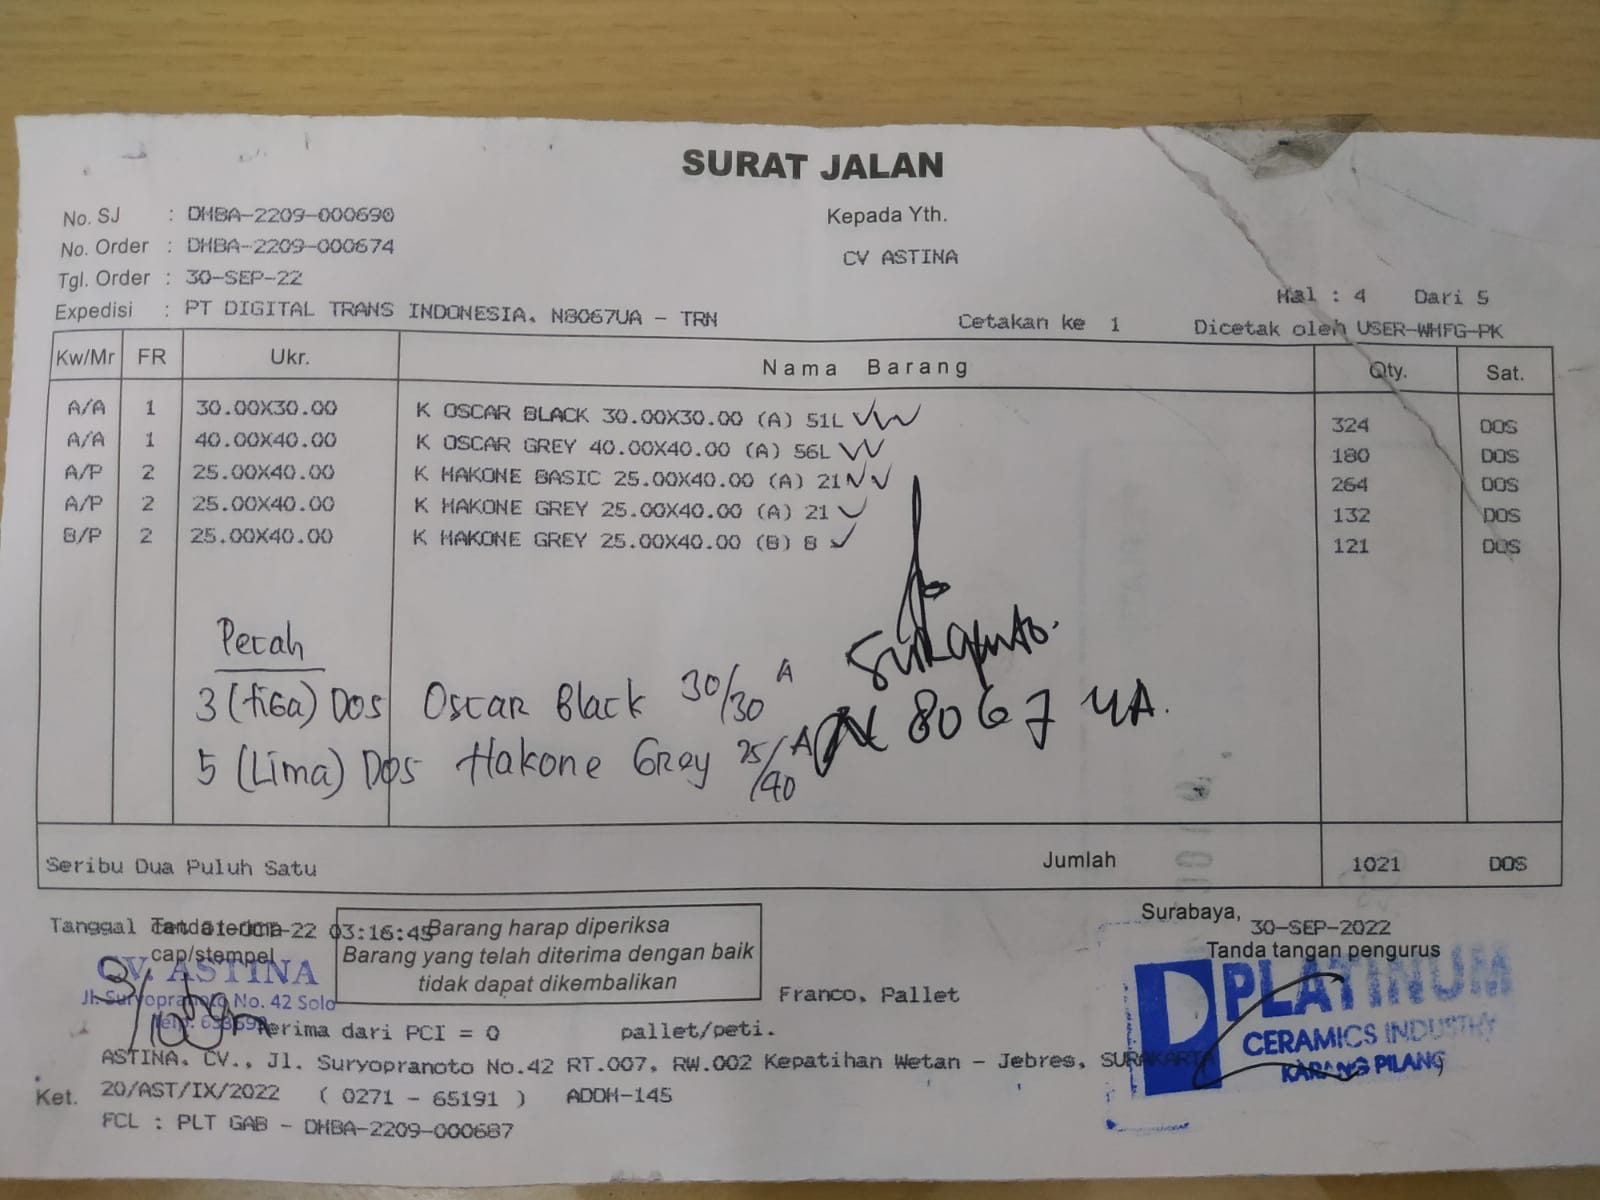 SURAT JALAN
No. SJ : DHBA-2209-000690
Kepada Yth.
No. Order : DHBA-2209-000674
CV ASTINA
Tgl. Order : 30-SEP-22
Hal : 4 Dari 5
Expedisi : PT DIGITAL TRANS INDONESIA. N8067UA - TRN
Cetakan ke 1 Dicetak oleh USER-WHFG-PK
Kw/Mr FR Ukr. Nama Barang Qty. Sat.
A/A 1 30.00X30.00 K OSCAR BLACK 30.00X30.00 (A) 51L 324 DOS
A/A 1 40.00X40.00 K OSCAR GREY 40.00X40.00 (A) 56L 180 DOS
A/P 2 25.00X40.00 K HAKONE BASIC 25.00X40.00 (A) 21 264 DOS
A/P 2 25.00X40.00 K HAKONE GREY 25.00X40.00 (A) 21 132 DOS
B/P 2 25.00X40.00 K HAKONE GREY 25.00X40.00 (B) B 121 DOS
Pecah
3 (tiGa) Dos Oscar Black 30/30 A
5 (Lima) Dos Hakone Grey 25/40 A
N 8067 UA.
Seribu Dua Puluh Satu Jumlah 1021 DOS
Tanggal 22 03:16:45
Tanda terima
cap/stempel
CV. ASTINA
Jl. Suryopranoto No. 42 Solo
Barang harap diperiksa
Barang yang telah diterima dengan baik
tidak dapat dikembalikan
Surabaya, 30-SEP-2022
Tanda tangan pengurus
PLATINUM
CERAMICS INDUSTRY
KARANG PILANG
Franco. Pallet
Terima dari PCI = 0 pallet/peti.
ASTINA. CV.. Jl. Suryopranoto No.42 RT.007. RW.002 Kepatihan Wetan - Jebres. SURAKARTA
Ket. 20/AST/IX/2022 ( 0271 - 65191 ) ADDH-145
FCL : PLT GAB - DHBA-2209-000687